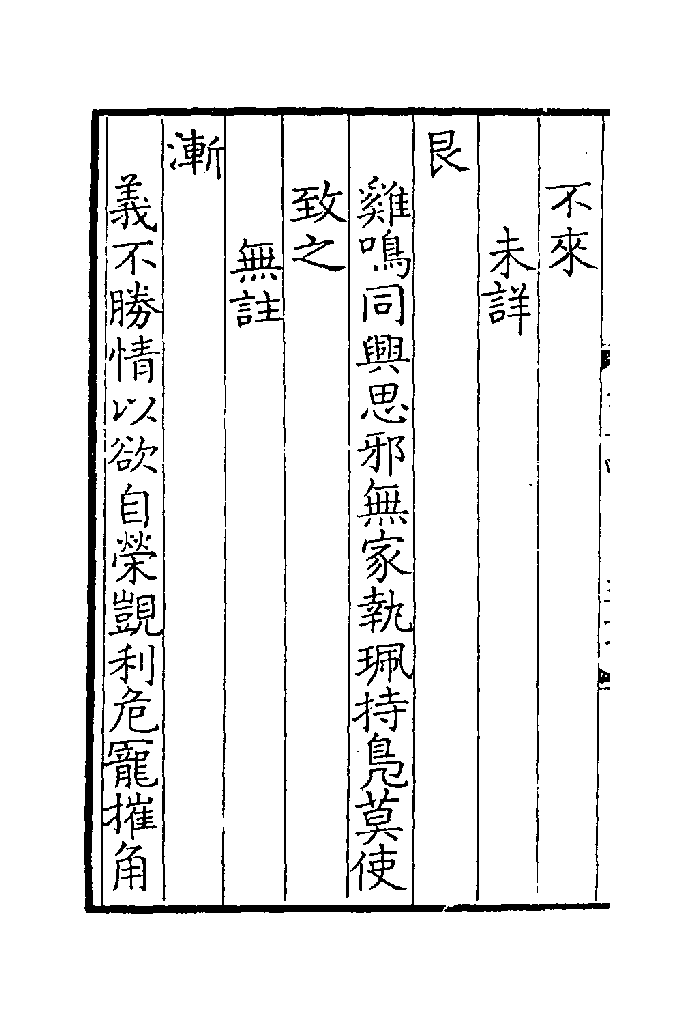 不來
未詳
艮
雞鳴同興思邪無家執珮持鳧莫使
致之
無註
漸
義不勝情以欲自榮覬利危寵摧角